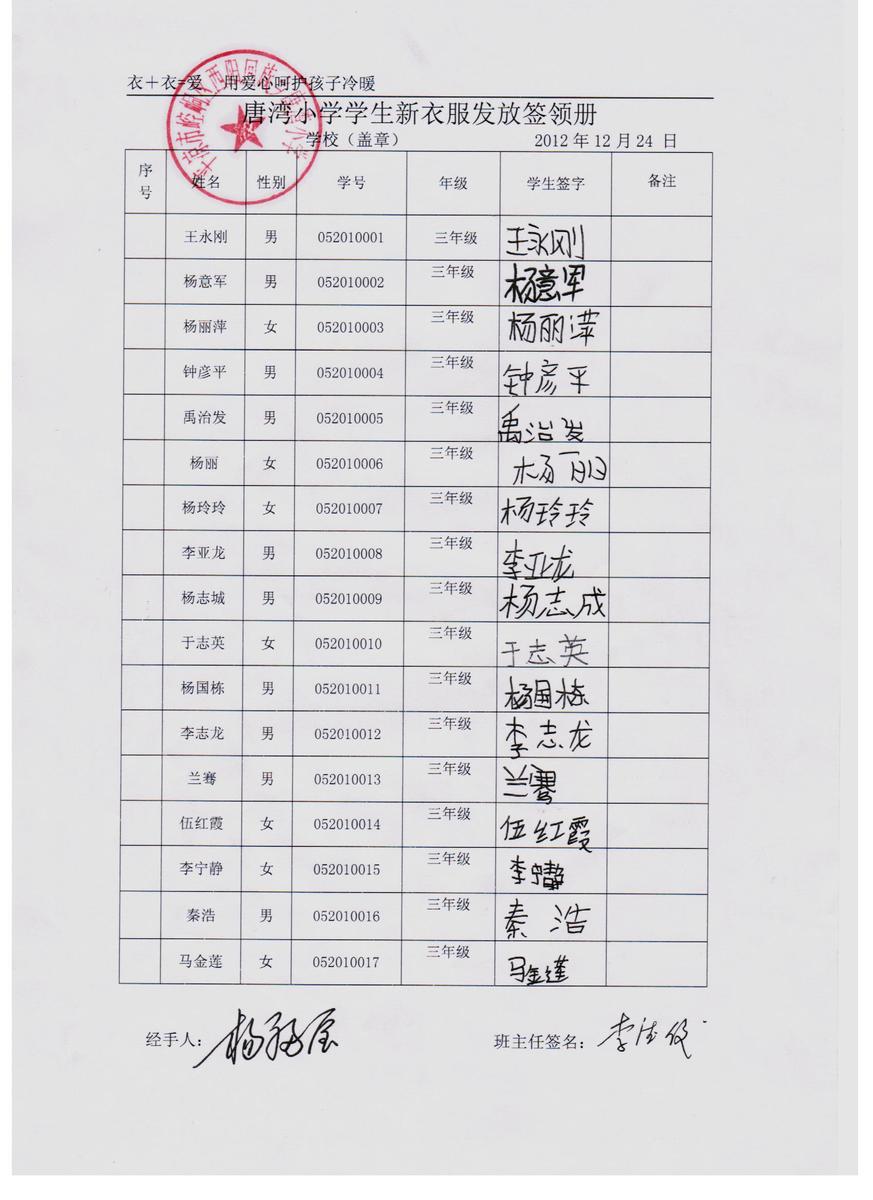 衣＋衣=爱 用爱心呵护孩子冷暖
唐湾小学学生新衣服发放签领册
学校（盖章） 2012年12月24日
序号 姓名 性别 学号 年级 学生签字 备注
王永刚 男 052010001 三年级 王永刚
杨意军 男 052010002 三年级 杨意军
杨丽萍 女 052010003 三年级 杨丽萍
钟彦平 男 052010004 三年级 钟彦平
禹治发 男 052010005 三年级 禹治发
杨丽 女 052010006 三年级 杨丽
杨玲玲 女 052010007 三年级 杨玲玲
李亚龙 男 052010008 三年级 李亚龙
杨志城 男 052010009 三年级 杨志成
于志英 女 052010010 三年级 于志英
杨国栋 男 052010011 三年级 杨国栋
李志龙 男 052010012 三年级 李志龙
兰骞 男 052010013 三年级 兰骞
伍红霞 女 052010014 三年级 伍红霞
李宁静 女 052010015 三年级 李宁静
秦浩 男 052010016 三年级 秦浩
马金莲 女 052010017 三年级 马金莲
经手人： 班主任签名：